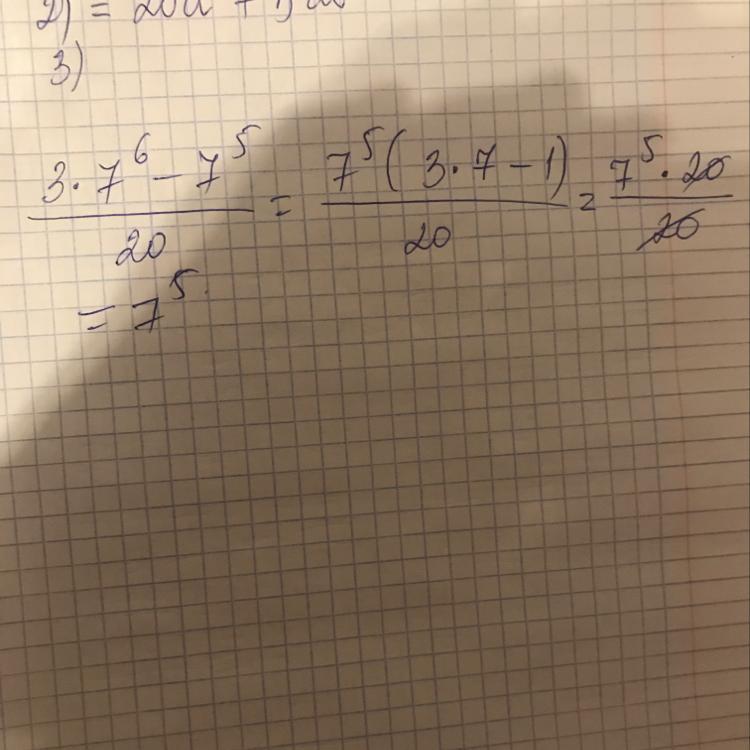 2) =
3)
3·7⁶ − 7⁵ / 20 = 7⁵(3·7 − 1) / 20 = 7⁵·20 / 20
= 7⁵.